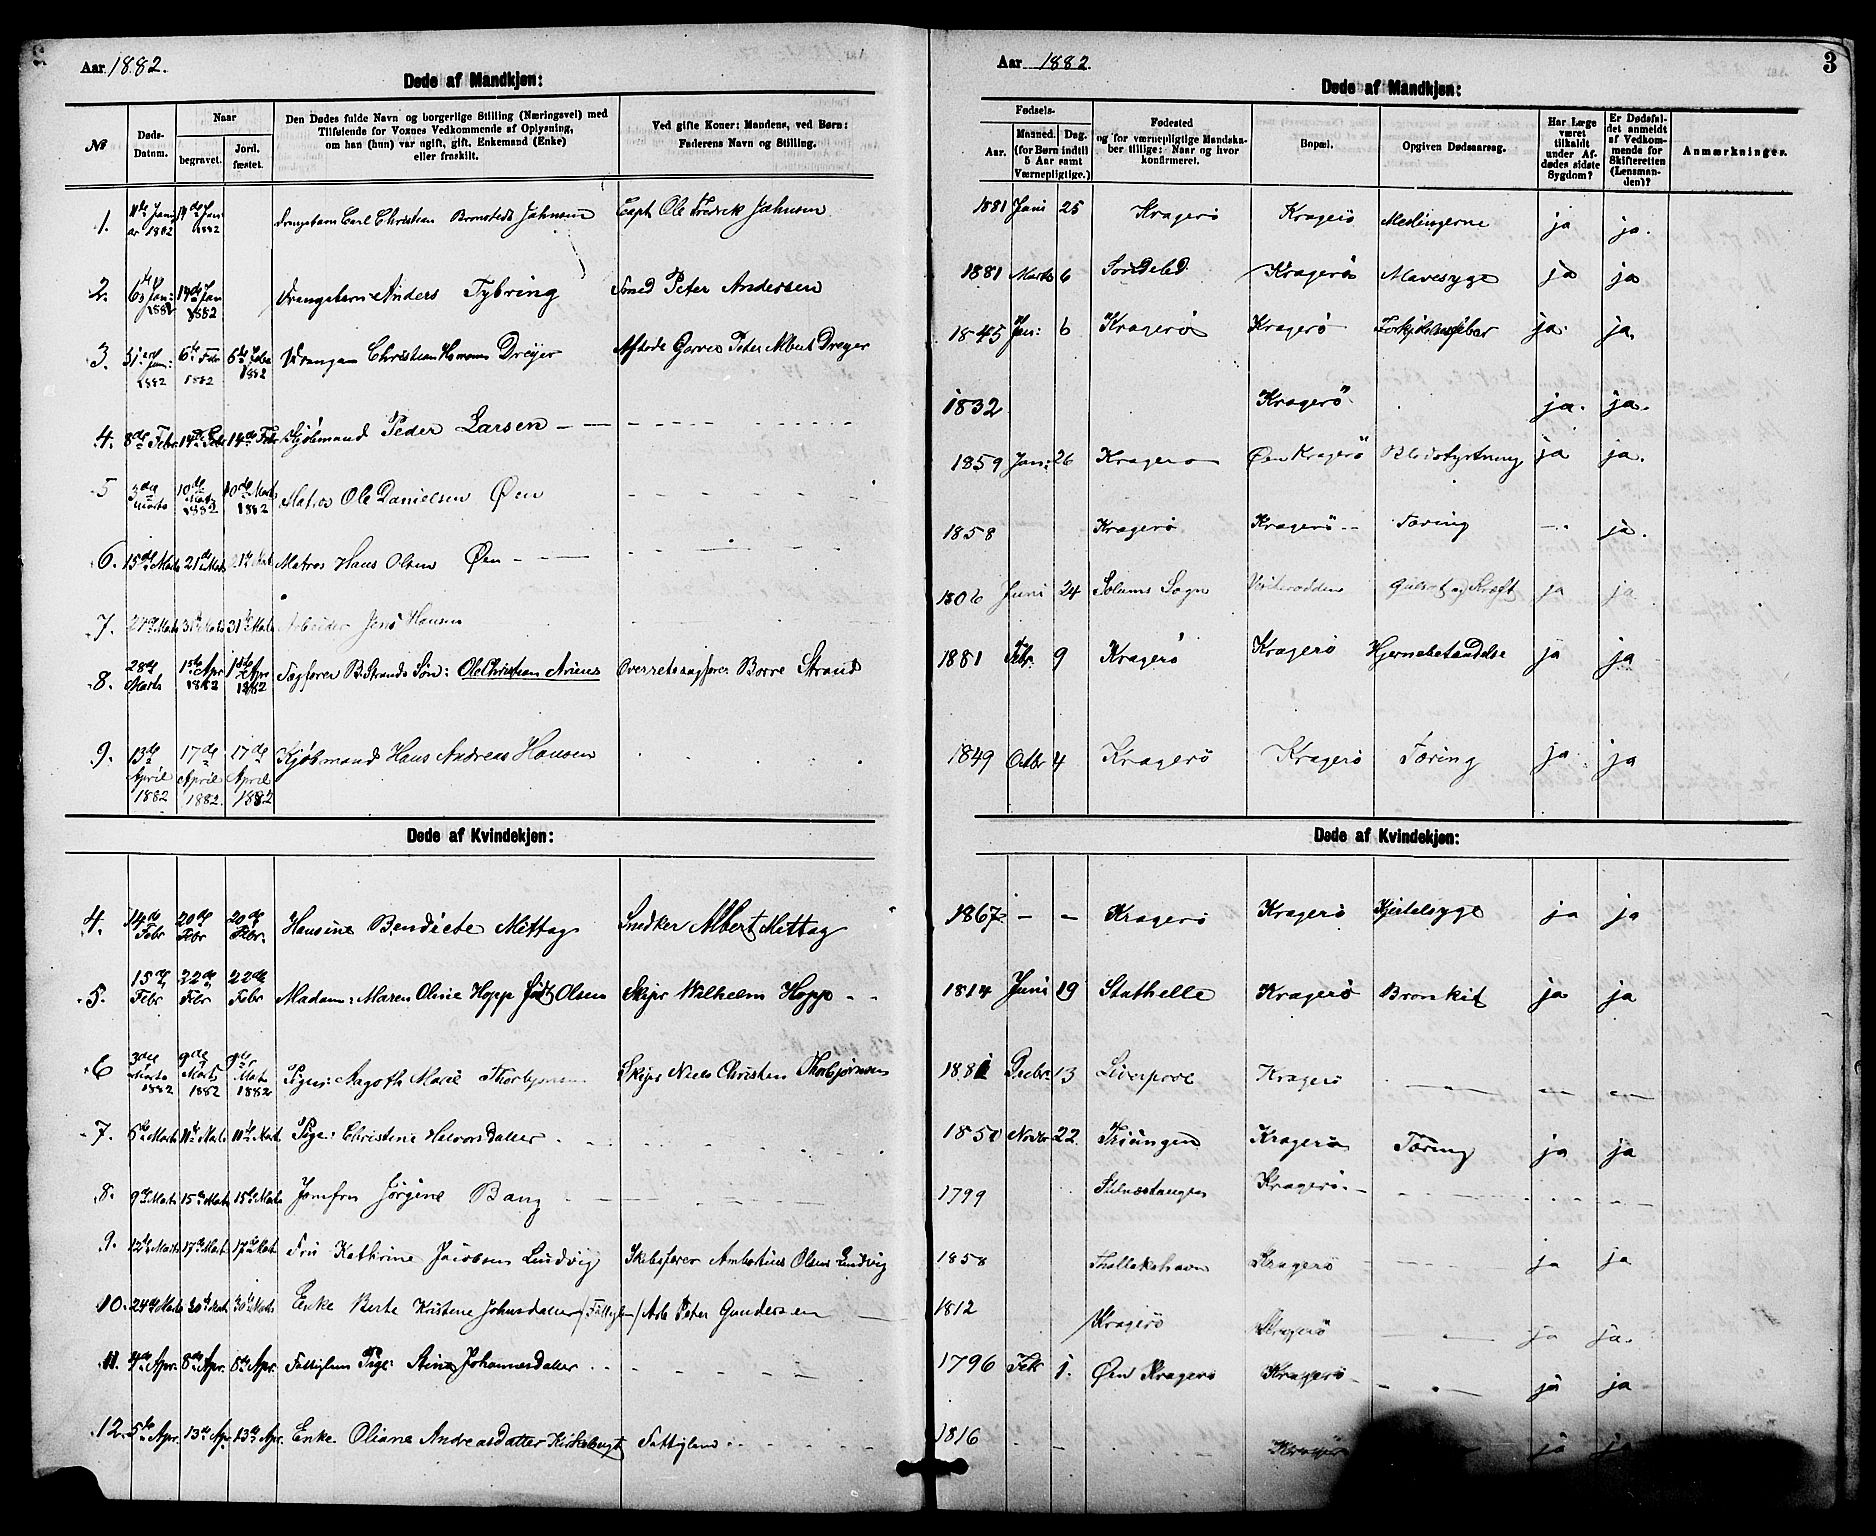 Aar 1882.
Døde af Mandkjøn:
№
Døds-Datum.
Naar
begravet.
Jord. fæstet.
Den Dødes fulde Navn og borgerlige Stilling (Næringsvei) med
Tilføiende for Voxnes Vedkommende af Oplysning,
om han (hun) var ugift, gift, Enkemand (Enke)
eller fraskilt.
Ved gifte Koner: Mandens, ved Børn:
Faderens Navn og Stilling.
1. 1882 14de Jan 1882 Drengebarn Carl Christian Jahnsen Capt. Ole Fredrik Jahnsen
2. 6te Jan: 1882 14de Jan 1882 Drengebarn Anders Tybring Smed Peter Andersen
3. 31 Jan: 1882 6te Febr 1882 6te 1882 Christian Dreyer Garver Peter Albert Dreyer
4. 8de Febr 14de Febr 14de Febr Kjøbmand Peder Larsen
5 3die Marts 10de Marts 1882 10de Marts 1882 Matros Ole Danielsen Øen
6. 15de Marts 21de Marts 21de Mart Matros Hans Olsen Øen
7. 27de Marts 31te Marts 31te Marts Arbeider Jens Hansen
8. 28de Marts 1ste Apr 1882 1ste Apr 1882 Sagfører B. Strands Søn: Ole Christian Overretssagfører Borre Strand
9. 13de April 1882 17de April 1882. 17de April 1882 Kjøbmand Hans Andreas Hansen
Døde af Kvindekjøn:
4. 14de Febr 20de Febr 20de Febr. Hansine Bendicte Mittag Snedker Albert Mittag
5. 15de Febr 22de Febr 22de Febr Madam: Maren Oline Hopp født Olsen Skipr Wilhelm Hopp
6 3die Marts 1882 9de Marts 1882 9de Marts 1882 Pige: Aagoth Marie Thorbjørnsen Skipr Niels Christen Thorbjørnsen
7. 6te Marts 11te Marts 11te Mart Pige: Christine Halvorsdatter
8. 9de Marts 15de Marts 15de Marts Jomfru Jørgine Bang
9. 12te Marts 17de Mart 17de Mart Fru Kathrine Jacobsen Lundvig Skibsfører Ambrosius Olsen Lundvig
10. 24de Marts 30te Marts 30te Marts Enke Berte Kristine Johnsdatter (Fattiglem) Arb Peter Gundersen
11. 4de Apr. 8de Apr. 8de Apr. Fattiglem Pige: Johannesdatter
12. 5de Apr. 13de Apr. 13de Apr. Enke Oliane Andreasdatter Fattiglem
Aar 1882
3
Døde af Mandkjøn:
Fødsels-
Aar.
Maaned. Dag.
(for Børn indtil
5 Aar samt
Værnepligtige.)
Fødested
og for værnepligtige Mandska-
ber tillige: Naar og hvor
konfirmeret.
Bopæl.
Opgiven Dødsaarsag.
Har Læge
været
tilkaldt
under Af-
dødes sidste
Sygdom?
Er Dødsfal-
det anmeldt
af Vedkom-
mende for
Skifteretten
(Lensman-
den)?
Anmærkninger.
1881 Juni 25 Kragerö Kragerö Meslingerne ja ja.
1881 Marts 6 Söndeled Kragerö Mavesyge ja ja
1845 Jan: 6 Kragerö Kragerö ja. ja.
1832 Kragerö ja. ja.
1859 Jan: 26 Kragerö Øen Kragerö Blodstyrtning ja ja.
1858 Kragerö Kragerö Tæring ja.
1806 Juni 24 Solums Sogn Gulsot og Kræft ja ja
1881 Febr. 9 Kragerö Kragerö Hjernebetændelse ja ja
1849 Octbr 4 Kragerö Kragerö Tæring ja ja
Døde af Kvindekjøn:
1867 - - Kragerö Kragerö Kjertelsyge ja ja
1814 Juni 19 Stathelle Kragerö Bronkit ja ja
1881 13 Liverpool Kragerö
1850 Novbr 22 Kragerö Tæring ja ja
1799 Kragerö
1858 Kragerö ja ja
1812 Kragerö Kragerö ja ja.
1796 Feb 1. Øen Kragerö Kragerö ja ja
1816 Kragerö ja ja